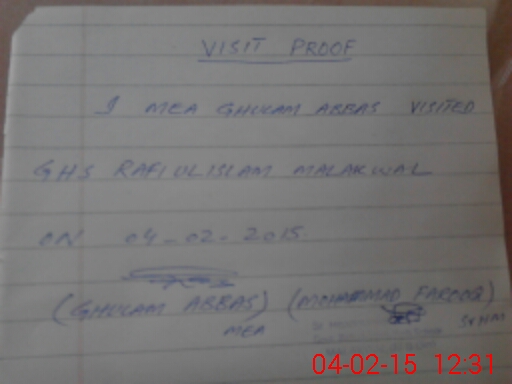 VISIT PROOF
I MEA GHULAM ABBAS VISITED
GHS RAFI UL ISLAM MALAKWAL
ON 04-02-2015.
(GHULAM ABBAS) (MOHAMMAD FAROOQ)
MEA Sr HM
04-02-15 12:31